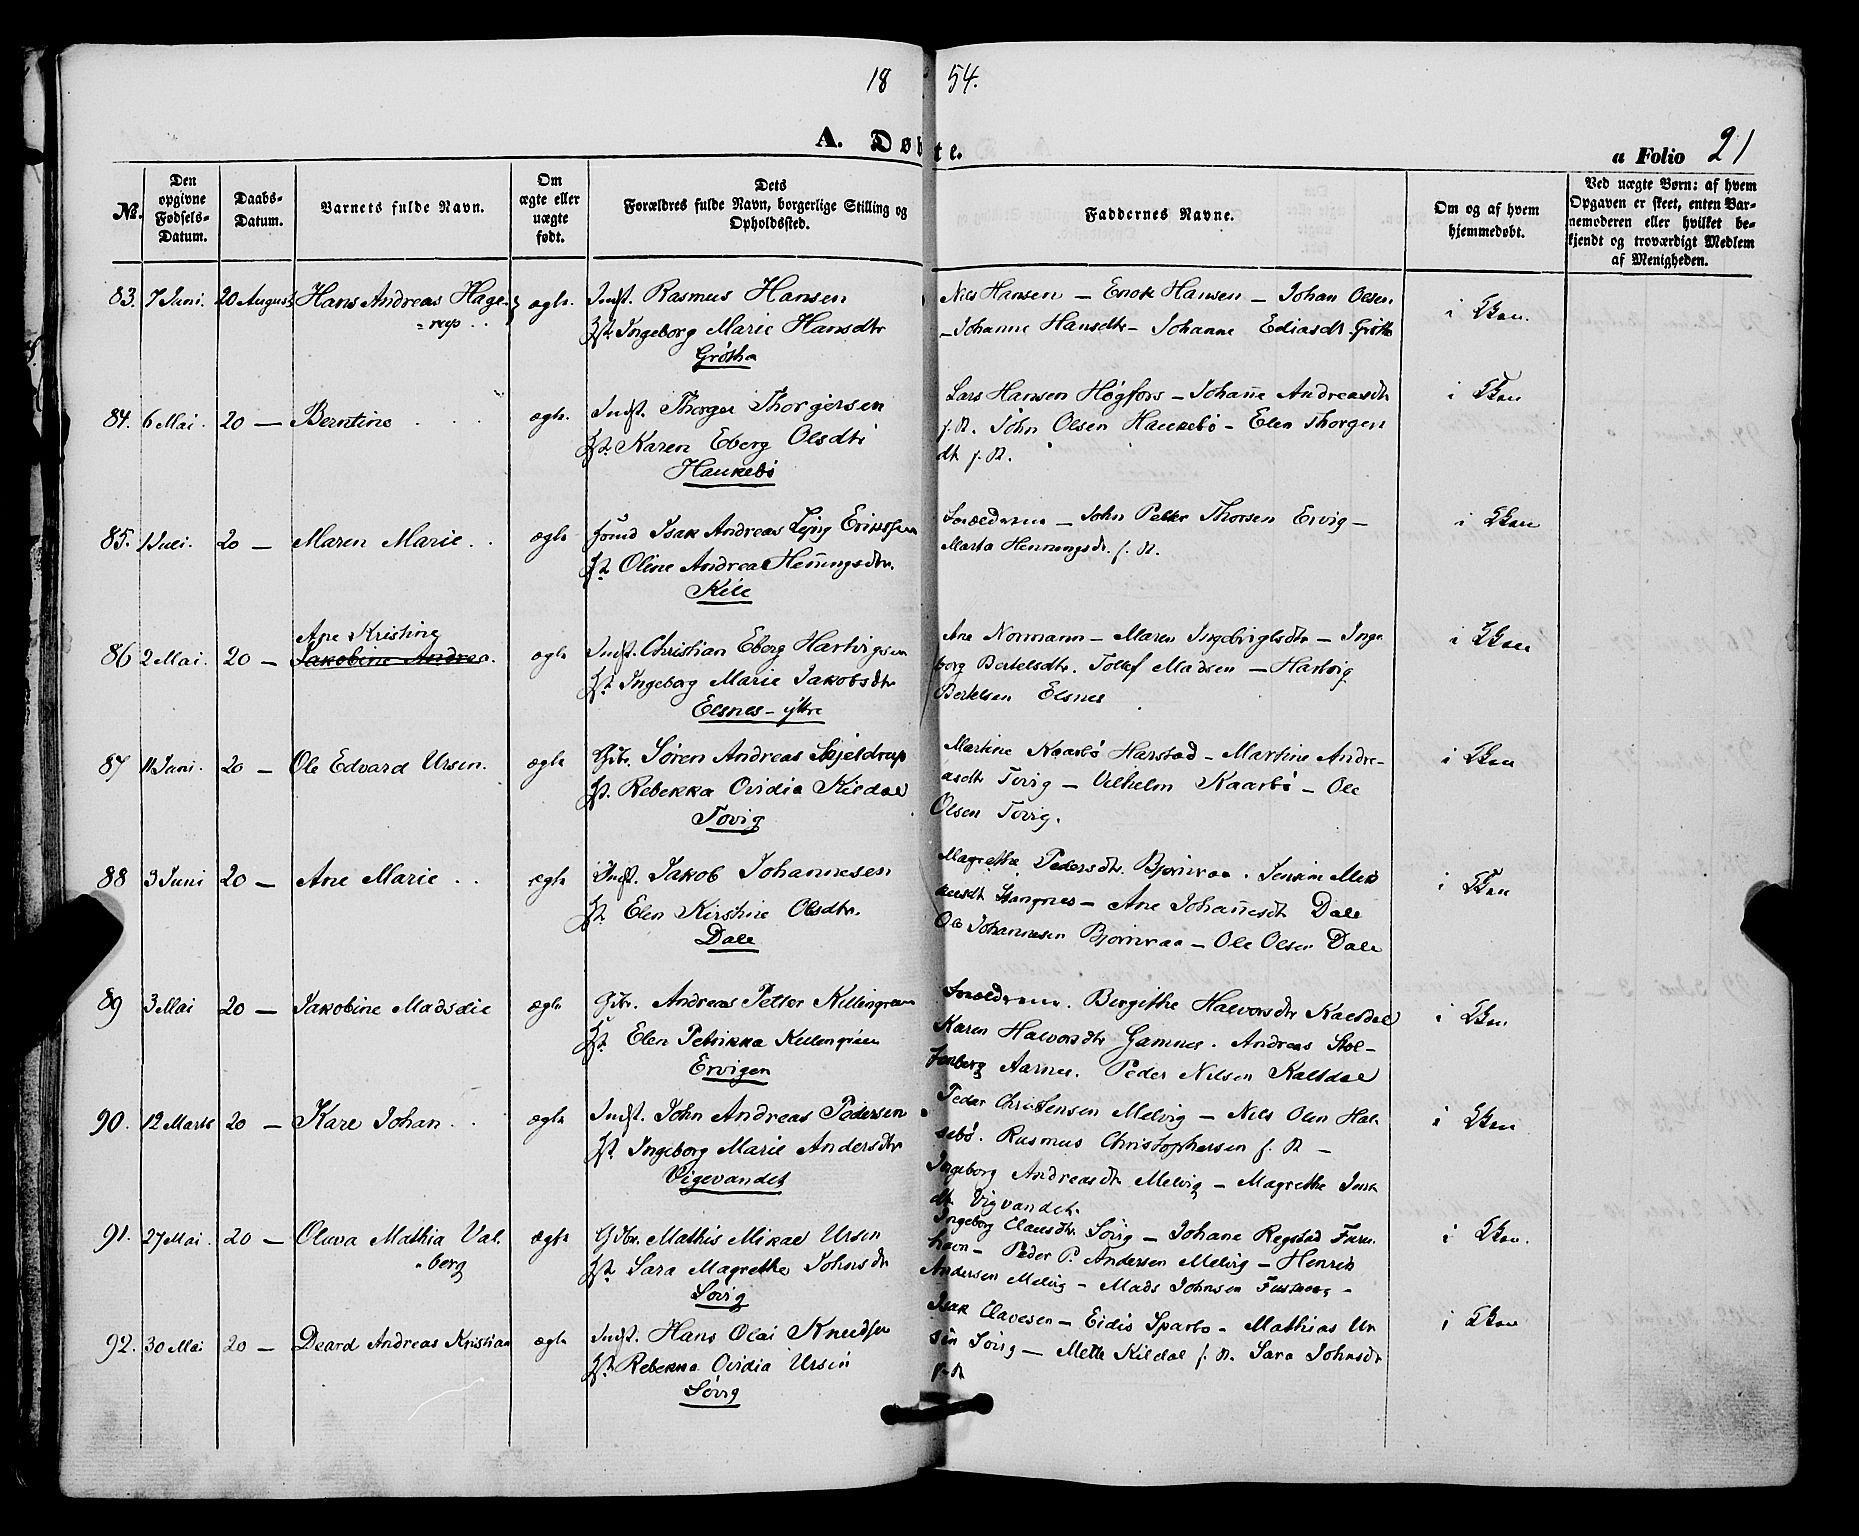 18 54.
A. Døbte.
a Folio 21
No.
Den opgivne Fødsels-Datum.
Daabs-Datum.
Barnets fulde Navn.
Om ægte eller uægte født.
Dets Forældres fulde Navn, borgerlige Stilling og Opholdssted.
Faddernes Navne.
Om og af hvem hjemmedøbt.
Ved uægte Børn: af hvem Opgaven er skeet, enten Barnemoderen eller hvilket bekjendt og troværdigt Medlem af Menigheden.
83. 7 Juni. 20 August Hans Andreas Hage-
rup . .
ægte. Indst. Rasmus Hansen
Hst. Ingeborg Marie Hansdtr
Grøthe
Nils Hansen — Enok Hansen — Johan Olsen
— Johanne Hansdtr — Johanne Ediasdt Grøthe
i Kken.
84. 6 Mai. 20 — Berntine . . .
ægte. Indst. Thorger Thorgersen
Hst. Karen Eberg Olsdtr
Haukebø
Lars Hansen Høgfors — Johanne Andreasdtr
f. St. John Olsen Haukebø — Elen Thorgers
dt f. St.
i Kken
85. 1 Juli. 20 — Maren Marie . .
ægte Isak Andreas Eriksen
Hst. Oline Andrea Henningsdtr.
Kile
Forældrene — John Petter Thorsen Ervig —
Marta Henningsdtr. f. St.
i Kken
86 2 Mai. 20 — Ane Kristine
Jakobine Andrea.
ægte Indst. Christian Eberg Hartvigsen
Hst. Ingeborg Marie Jakobsdtr
Elsnes — yttre
Ane Normann — Maren Ingebrigtsdtr — Inge
borg Bertelsdtr. Tollef Madsen — Hartvig
Bertelsen Elsnes
i Kken
87 11 Juni. 20 — Ole Edvard Ursin.
ægte Gbr. Søren Andreas Skjeldrup
Hst. Rebekka Ovidia Kildal
Tovig
Martine Kaarbø Harstad — Martine Andre-
asdtr Tovig — Vilhelm Kaarbø — Ole
Olsen Tovig.
i Kken
88 3 Juni 20 — Ane Marie . .
ægte Indst. Jakob Johannesen
Hst. Elen Kirstine Olsdtr.
Dale
Magrethe Pedersdtr. Bjørnraa . Jensine Mik
kelsdt Stangnes — Ane Johannesdt Dale
Ole Johannesen Bjørnraa — Ole Olsen Dale
i Kken
89 3 Mai 20 — Jakobine Madsdie
ægte Gbr. Andreas Petter Killengreen
Hst. Elen Petrikka Killengreen
Ervigen
Forældrene . Birgithe Halvorsdtr Kaltdal
Karen Halvorsdtr Gamnes . Andreas Stol-
tenberg Aarnes. Peder Nilsen Kaltdal
i Kken
90. 12 Marts 20 — Kare Johan . .
ægte Indst. John Andreas Pedersen
Hst. Ingeborg Marie Andersdtr
Vigevandet
Peder Christensen Melvig — Nils Olsen Hal-
sebø. Rasmus Christophersen f. St —
Ingeborg Andreasdtr Melvig — Magrethe Jens
dtr Vigvandet.
i Kken
91. 27 Mai. 20 — Oluva Mathia Val-
berg
ægte Gbr. Mathis Mikael Ursin
Hst. Sara Magrethe Johnsdtr
Sørvig
Ingeborg Clausdtr. Sørvig — Johane Regstad
havn — Peder P. Andersen Melvig — Henrik
Andersen Melvig — Mads Johnsen
i Kken.
92. 30 Mai 20 — Deard Andreas Kristian
ægte Indst. Hans Olai Knudsen
Hst. Rebekka Ovidia Ursin
Sørvig
Isak Clavesen — Eidis Sparbo — Mathias Ur
sin Sørvig — Mette Kildal f. St. Sara Johnsdtr
f. St
i Kken